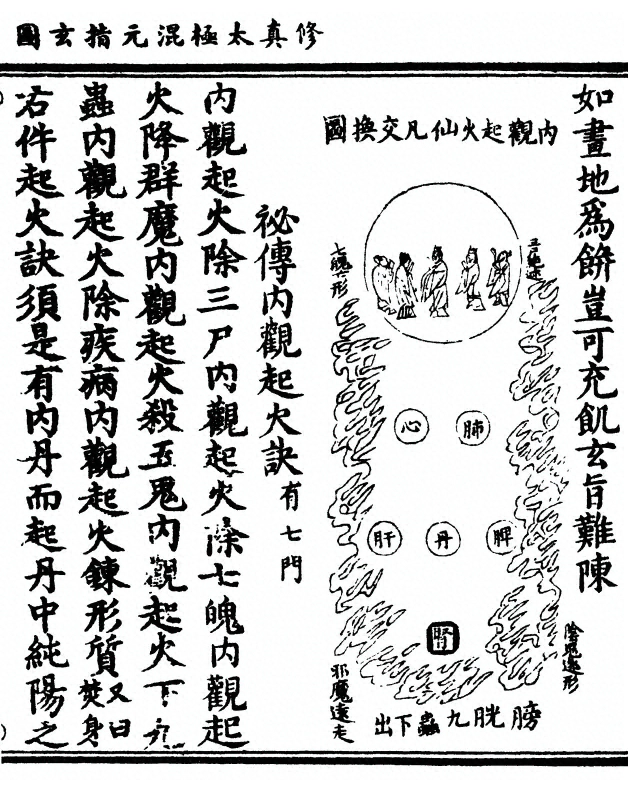 修真太極混元指玄圖
如畫地爲餅豈可充飢玄旨難陳
內觀起火仙凡交換圖
五鬼
七魄形
心
肺
肝
丹
脾
腎
陰鬼形
邪魔遠走
膀胱九蟲下出
祕傳內觀起火訣有七門
內觀起火除三尸內觀起火除七魄內觀起
火降群魔內觀起火殺五鬼內觀起火下九
蟲內觀起火除疾病內觀起火鍊形質又曰焚身
右件起火訣須是有內丹而起丹中純陽之